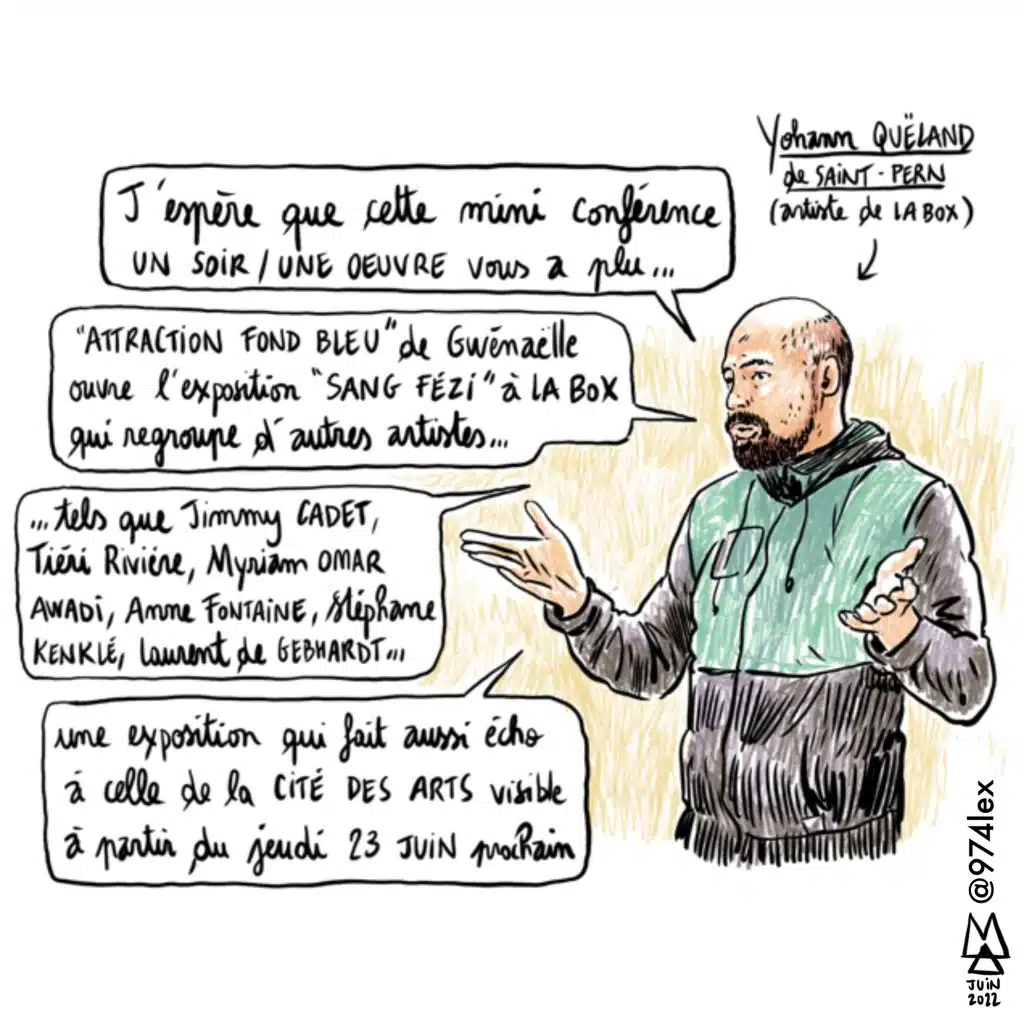 Yohann QUËLAND
de SAINT-PERN
(artiste de LA BOX)
J'espère que cette mini conférence
UN SOIR / UNE OEUVRE vous a plu...
"ATTRACTION FOND BLEU" de Gwénaëlle
ouvre l'exposition "SANG FÉZI" à LA BOX
qui regroupe d'autres artistes...
...tels que Jimmy CADET,
Tiéri Rivière, Myriam OMAR
AWADI, Anne FONTAINE, Stéphane
KENKLÉ, Laurent de GEBHARDT...
une exposition qui fait aussi écho
à celle de la CITÉ DES ARTS visible
à partir du jeudi 23 JUIN prochain
@974lex
JUIN
2022